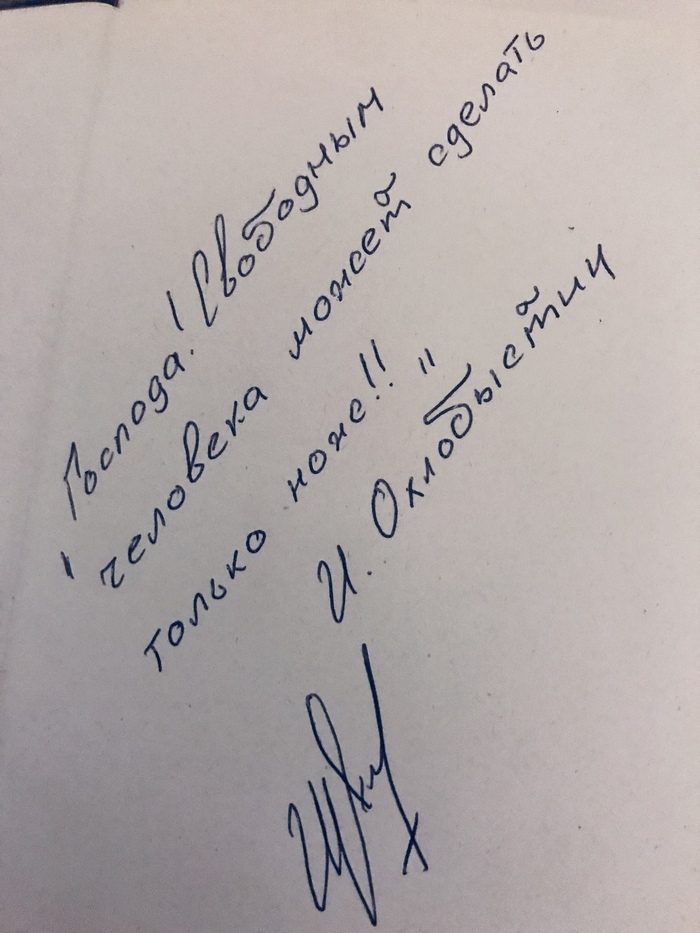 "Господа! Свободным
человека может сделать
только ноже!! "
И. Охлобыстин